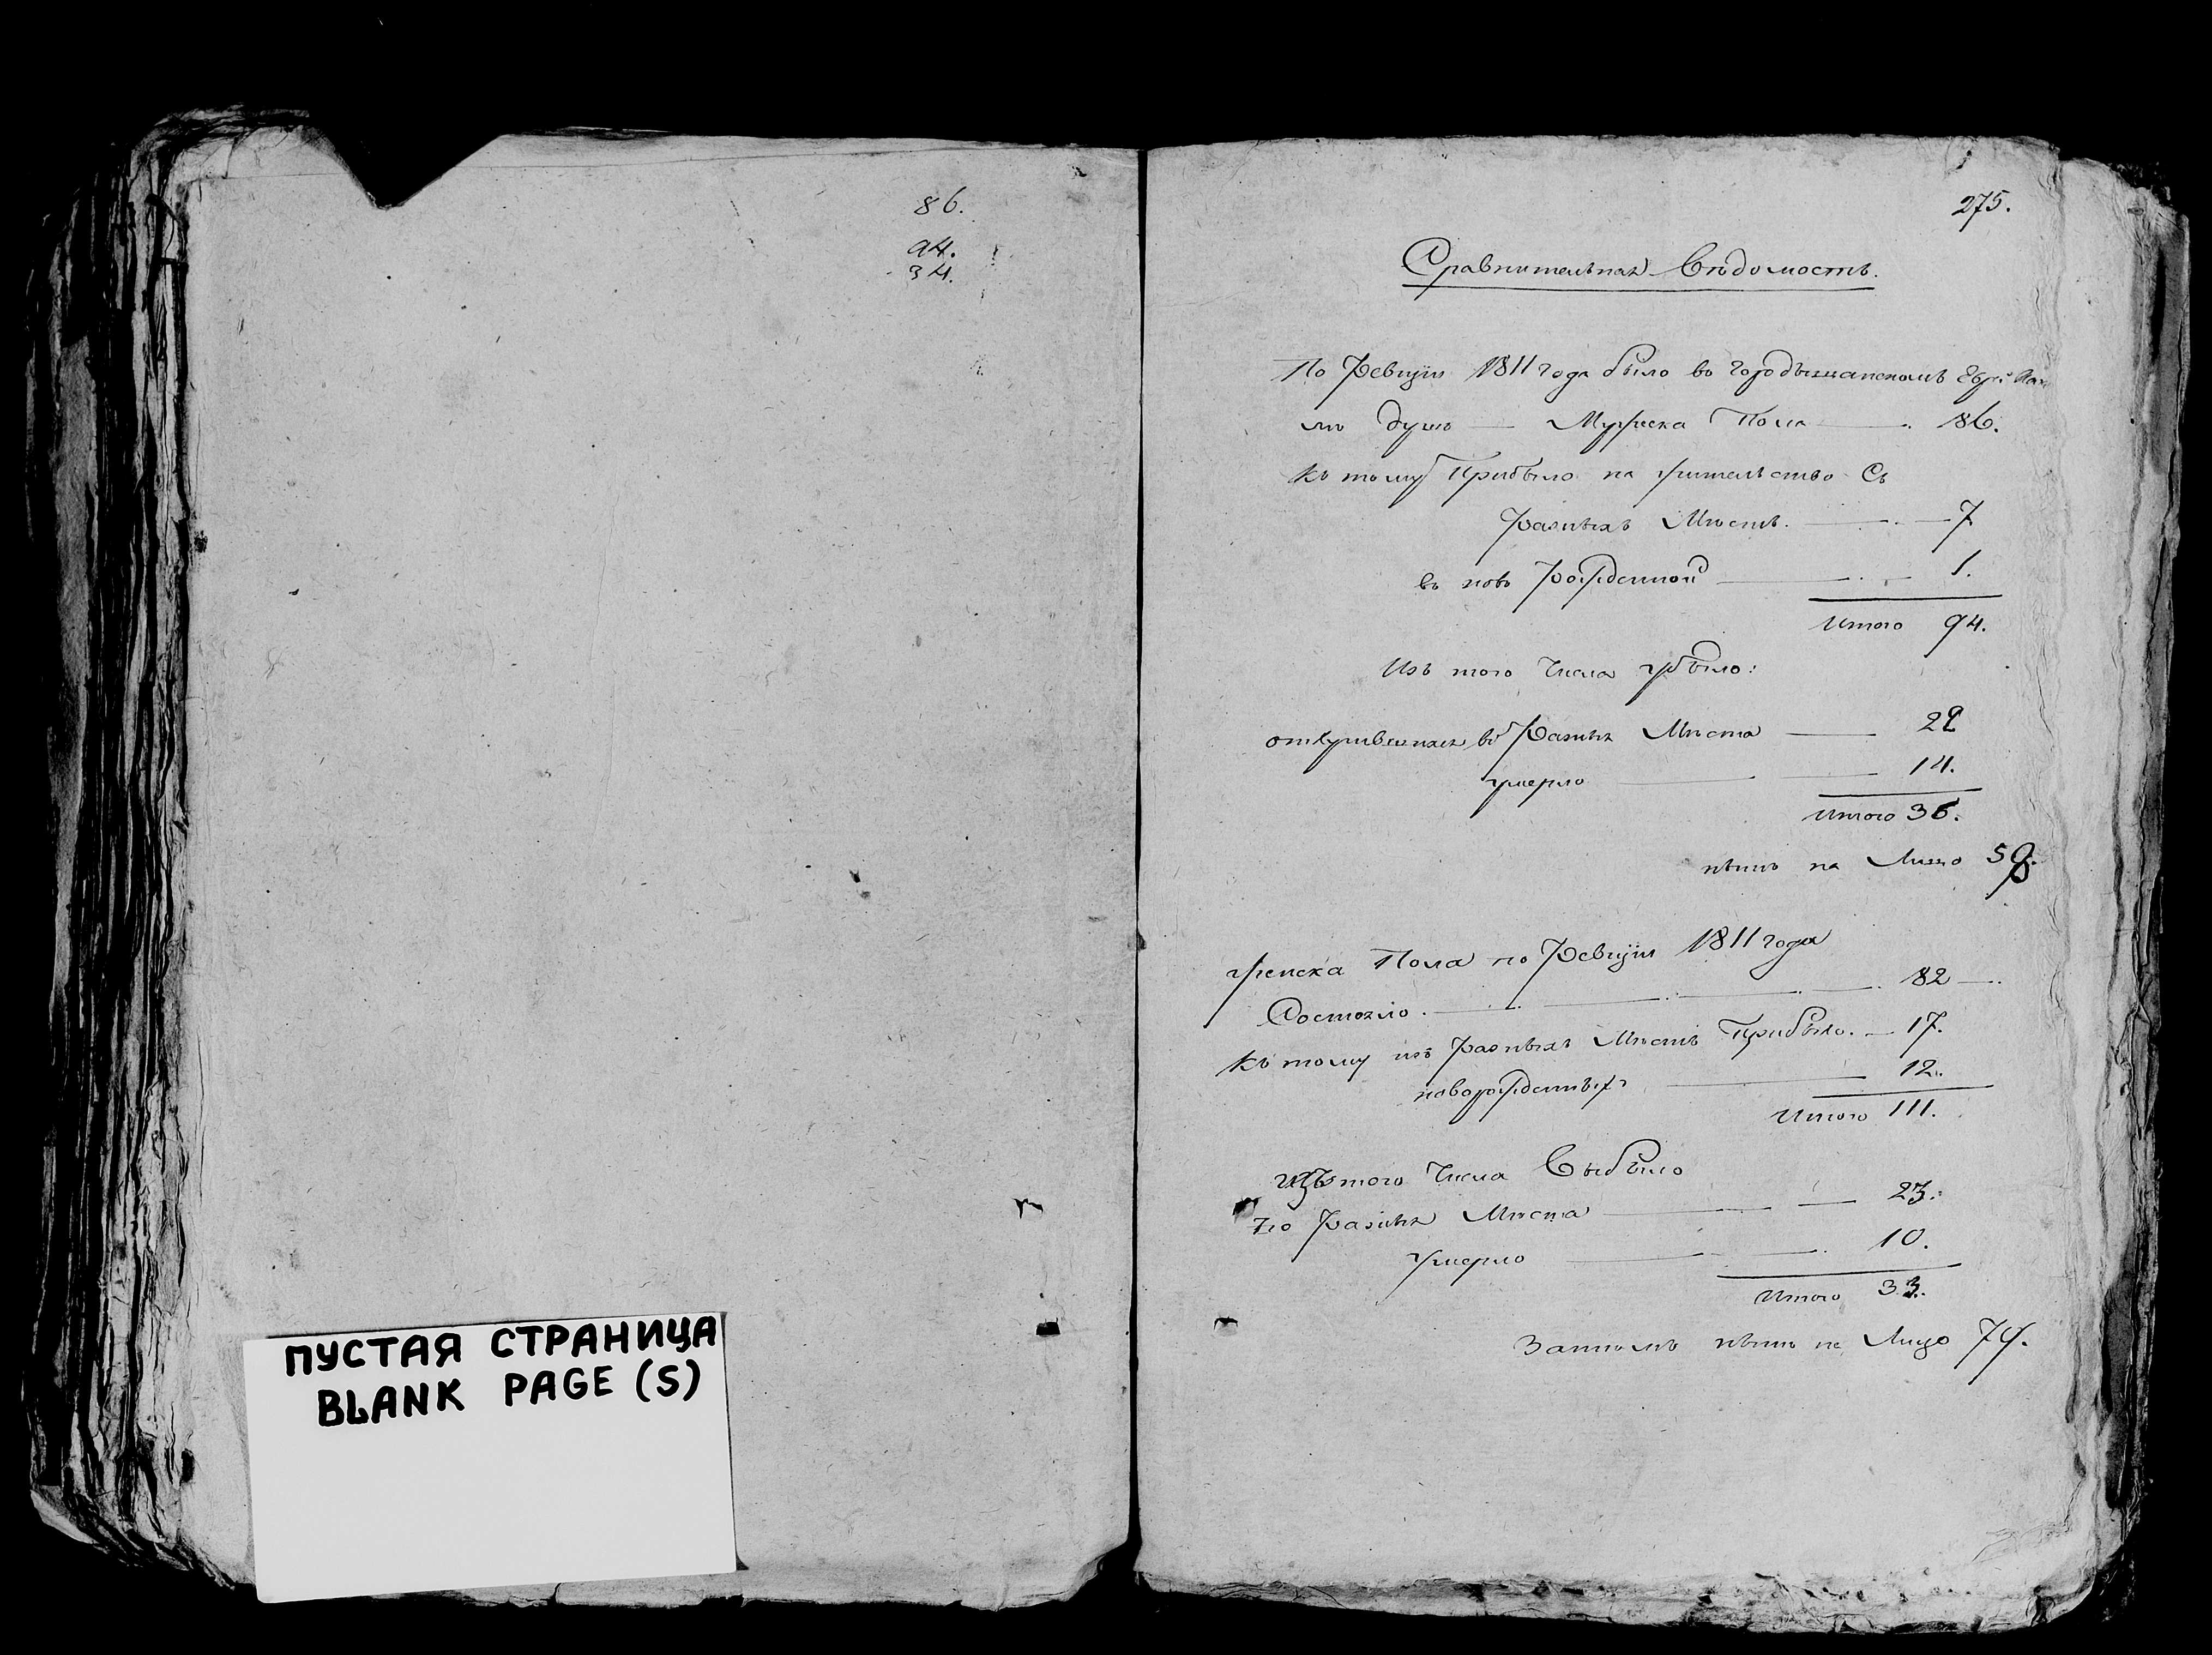 86.
94.
34.
ПУСТАЯ СТРАНИЦА
BLANK PAGE (S)
275.
Сравнительная Ведомость.
По Ревизіи 1811 года было во Городыщанскомъ
душъ — Мужеска Пола — 86.
Къ тому Прибыло на жительство Съ
разныхъ Мѣстъ. — 7
въ новь рожденной — 1.
Итого 94.
Изъ того Числа убыло:
отлучившихся во Разныя Мѣста — 22
умерло — 14.
Итого 36.
нынѣ на Лицо 58.
женска Пола по Ревизіи 1811 года
Состояло. — 82
Къ тому изъ разныхъ Мѣстъ Прибыло. — 17.
новорожденныхъ — 12.
Итого 111.
Изъ того Числа Выбыло
по Разныя Мѣста — 23.
умерло — 10.
Итого 33.
Затѣмъ нынѣ на Лицо 78.